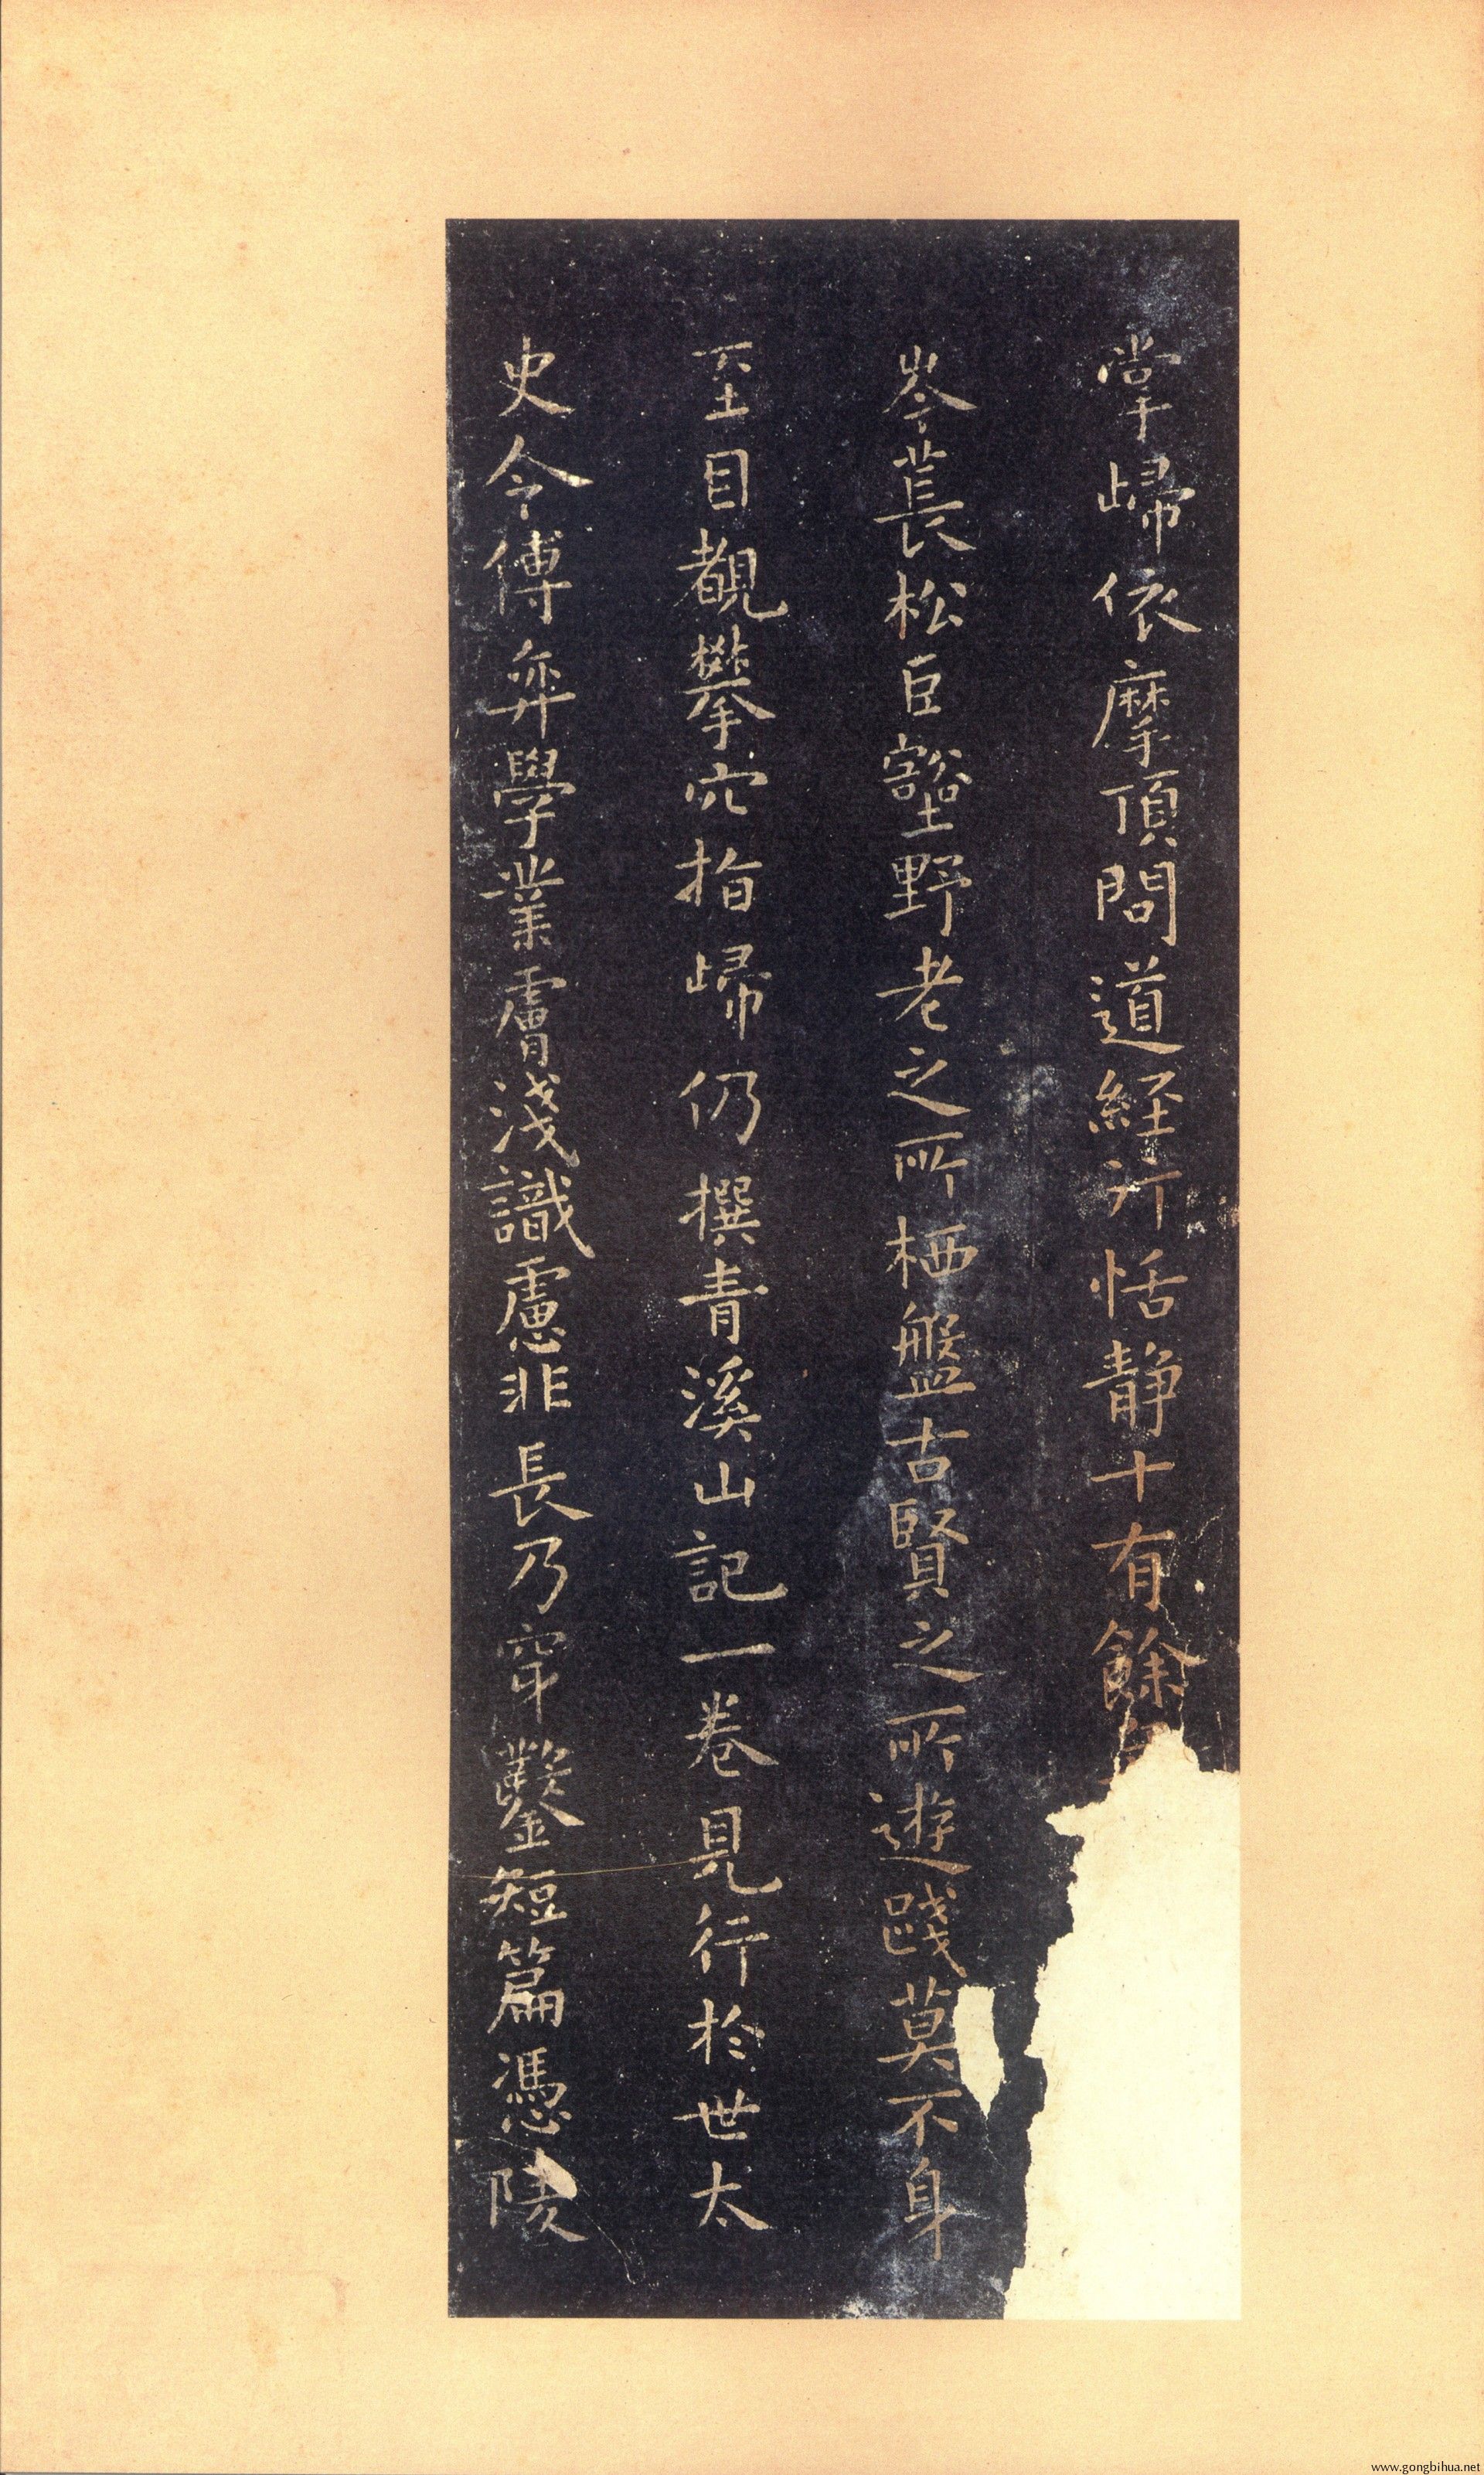 掌歸依摩頂問道經行恬静十有餘
岑萇松巨壑野老之所栖盤古賢之所遊踐莫不身
至目覩攀穴指歸仍撰青溪山記一卷見行於世太
史令傅弈學業膚淺識慮非長乃穿鑿短篇憑陵
www.gongbihua.net